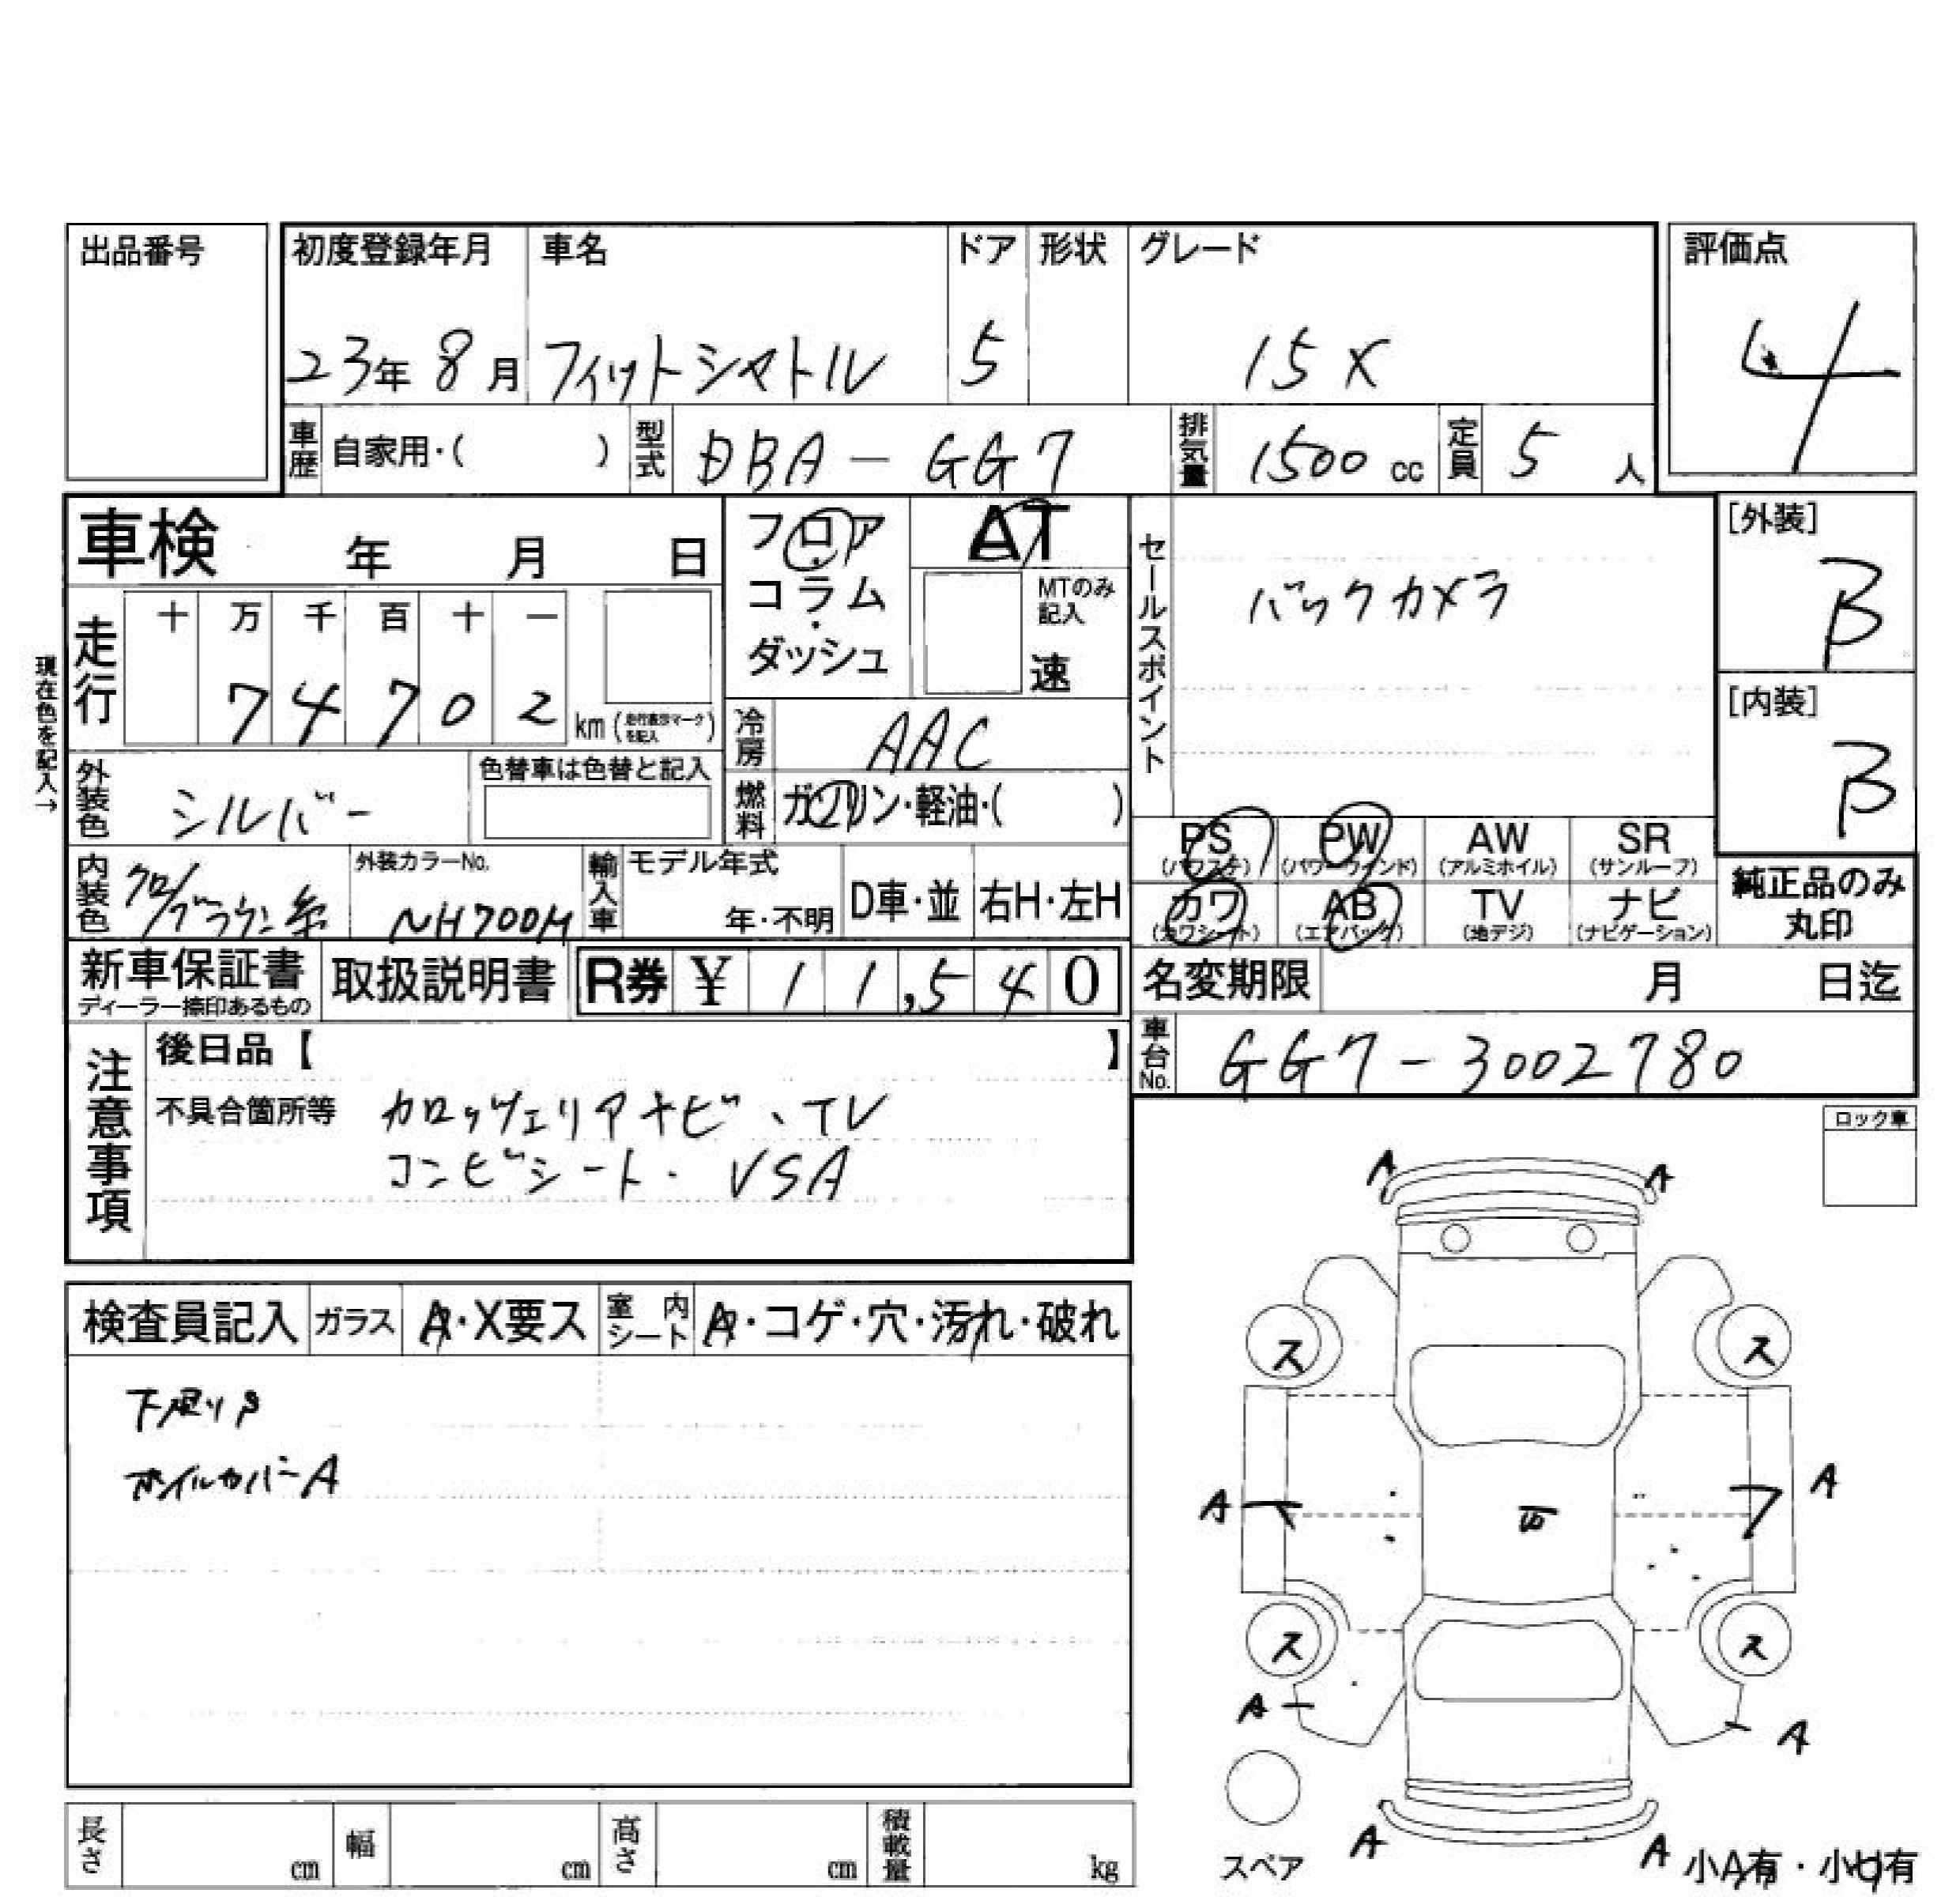 出品番号
初度登録年月 車名 ドア 形状 グレード 評価点
23年 8月 フィットシャトル 5 15X 4
車歴 自家用・( ) 型式 DBA-GG7 排気量 1500 cc 定員 5 人
車検 年 月 日
フロア・コラム・ダッシュ
AT
MTのみ記入
速
セールスポイント
バックカメラ
[外装]
B
[内装]
B
現在色を記入→
走行 十 万 千 百 十 一
7 4 7 0 2 km (走行表示マークを記入)
冷房 AAC
外装色 シルバー 色替車は色替と記入
燃料 ガソリン・軽油・( )
PS (パワステ) PW (パワーウィンド) AW (アルミホイル) SR (サンルーフ)
内装色 クロ/ブラウン系 外装カラーNo. NH700M 輸入車 モデル年式 年・不明 D車・並 右H・左H
カワ (カワシート) AB (エアバック) TV (地デジ) ナビ (ナビゲーション)
純正品のみ丸印
新車保証書 ディーラー捺印あるもの 取扱説明書 R券 ¥ 11,540
名変期限 月 日迄
車台No. GG7-3002780
注意事項
後日品【 】
不具合箇所等 カロッツェリアナビ、TV
コンビシート. VSA
ロック車
検査員記入 ガラス A・X要ス 室内シート A・コゲ・穴・汚れ・破れ
ホイルカバーA
A A
ス ス
A A
ス ス
A A
A A
スペア
小A有・小U有
長さ cm 幅 cm 高さ cm 積載量 kg